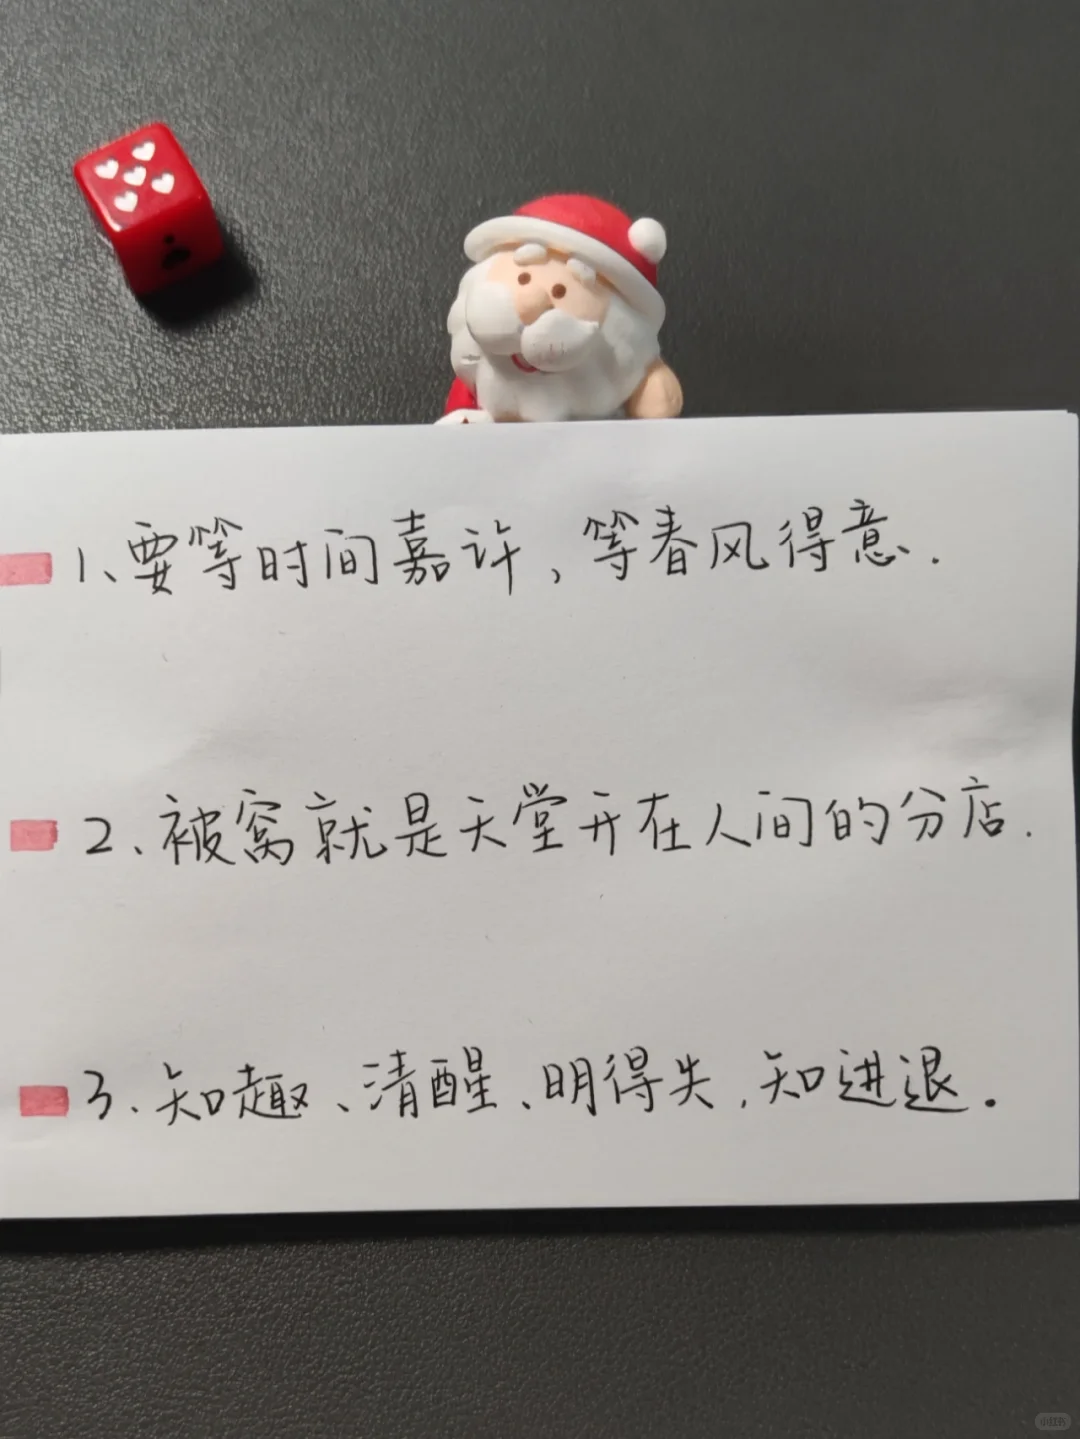 1、要等时间嘉许，等春风得意.
2、被窝就是天堂开在人间的分店.
3、知趣、清醒、明得失，知进退。
小红书